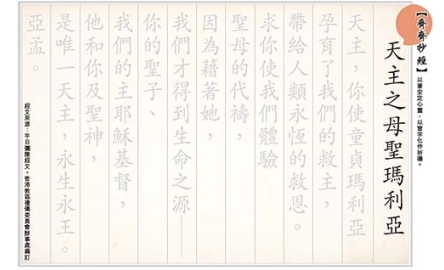 【齊齊抄經】以筆安定心靈,以習字化作祈禱。
天主之母聖瑪利亞
天主,你使童貞瑪利亞
孕育了我們的救主,
帶給人類永恆的救恩。
求你使我們體驗
聖母的代禱,
因為藉著她,
我們才得到生命之源——
你的聖子、
我們的主耶穌基督,
他和你及聖神,
是唯一天主,永生永王。
亞孟。
經文來源:平日彌撒經文。香港教區禮儀委員會辦事處編訂